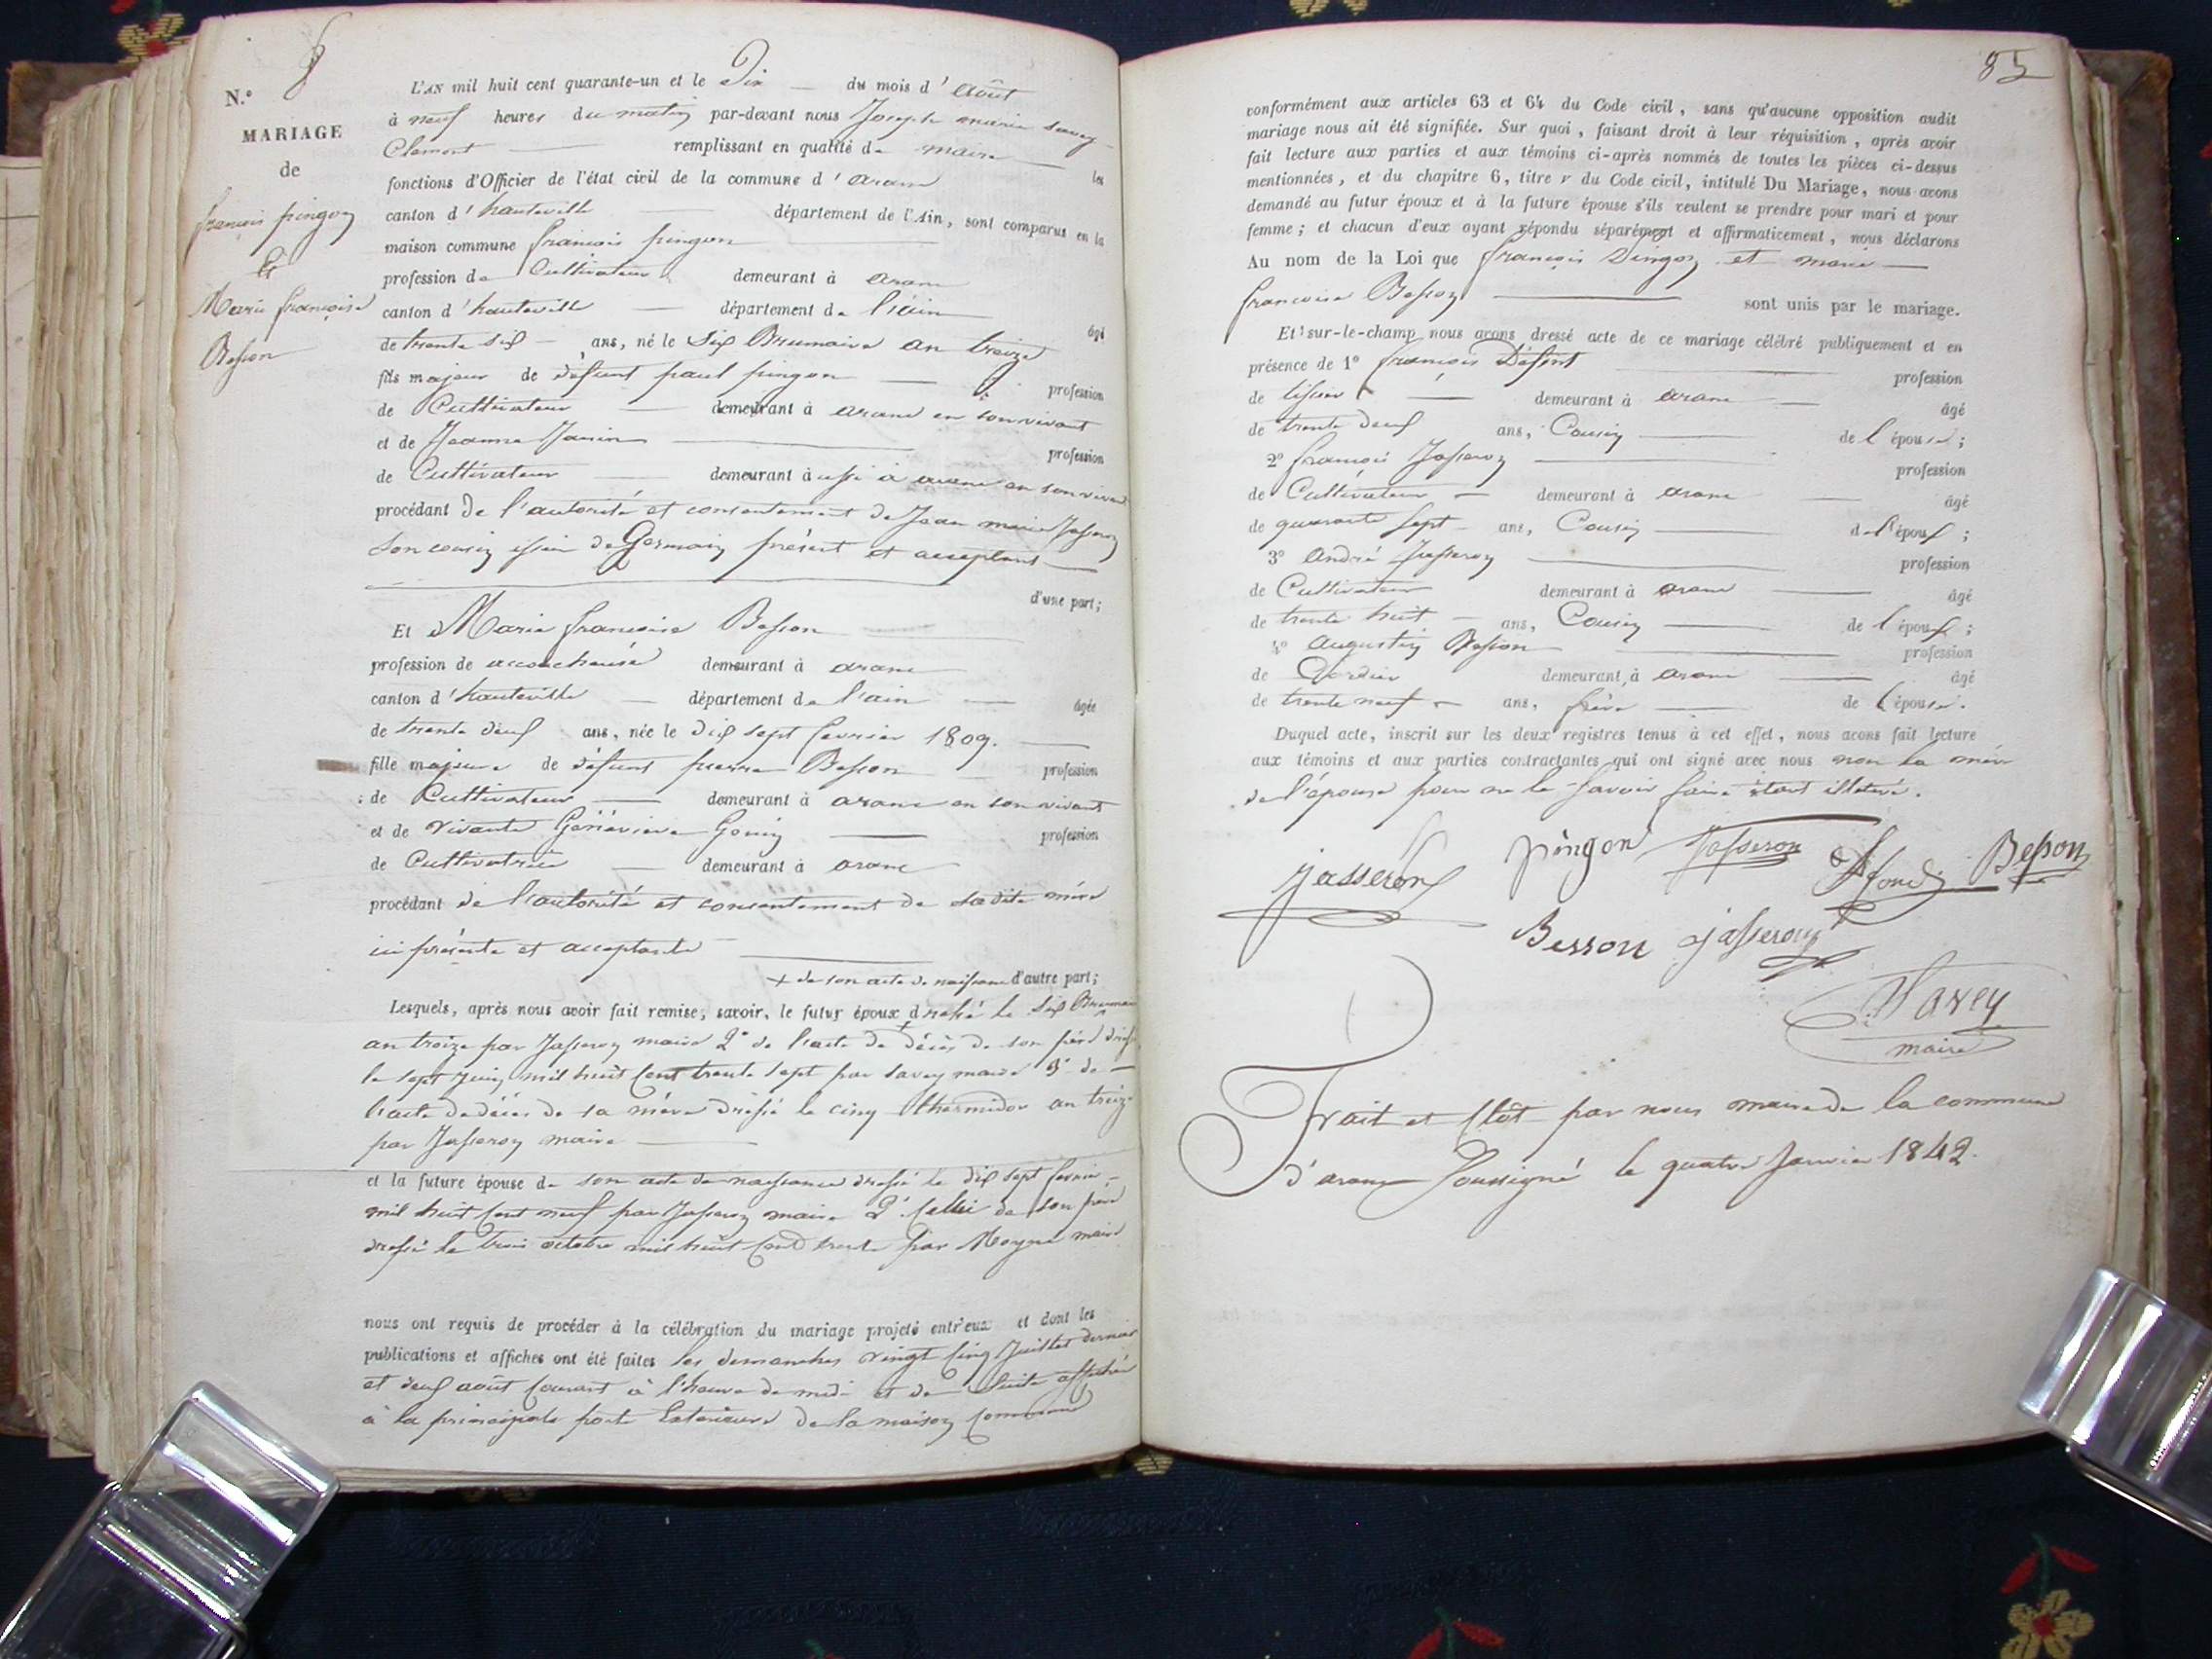 N.° 8
MARIAGE
de
françois pingon
Et
Marie françoise
Besson
L'AN mil huit cent quarante-un et le Dix du mois d'août
à neuf heures du matin par-devant nous Joseph marie Savey
Clemont remplissant en qualité de maire les
fonctions d'Officier de l'état civil de la commune d'arane
canton d'hauteville département de l'Ain, sont comparus en la
maison commune françois pingon
profession de Cultivateur demeurant à arane
canton d'hauteville département de l'ain âgé
de trente six ans, né le Six Brumaire an treize
fils majeur de défunt paul pingon profession
de Cultivateur demeurant à arane en son vivant
et de Jeanne Janin profession
de Cultivateur demeurant aussi à arane en son vivant
procédant de l'autorité et consentement de Jean marie Jasseron
Son cousin issu de Germain présent et acceptant
d'une part;
Et Marie françoise Besson
profession de accoucheuse demeurant à arane
canton d'hauteville département de l'ain âgée
de trente deux ans, née le dix sept fevrier 1809.
fille majeure de défunt pierre Besson profession
de Cultivateur demeurant à arane en son vivant
et de vivante Géneviève Gouin profession
de Cultivatrice demeurant à arane
procédant de l'autorité et consentement de sadite mère
ici présente et acceptante
+ de son acte de naissance d'autre part;
Lesquels, après nous avoir fait remise, savoir, le futur époux + le Six Brumaire
an treize par Jasseron maire 2° de l'acte de décès de son père dressé
le sept juin mil huit Cent trente sept par Savey maire 3° de
l'acte de décès de sa mère dressé le cinq thermidor an treize
par Jasseron maire
et la future épouse de son acte de naissance dressé le dix sept fevrier
mil huit Cent neuf par Jasseron maire 2° Celui de son père
dressé le trois octobre mil huit Cent trente par Moyne maire
nous ont requis de procéder à la célébration du mariage projeté entr'eux et dont les
publications et affiches ont été faites les dimanches vingt Cinq Juillet dernier
et deux août Courant à l'heure de midi et de Suite affichés
à la principale porte Exterieure de la maison Commune
85
conformément aux articles 63 et 64 du Code civil, sans qu'aucune opposition audit
mariage nous ait été signifiée. Sur quoi, faisant droit à leur réquisition, après avoir
fait lecture aux parties et aux témoins ci-après nommés de toutes les pièces ci-dessus
mentionnées, et du chapitre 6, titre v du Code civil, intitulé Du Mariage, nous avons
demandé au futur époux et à la future épouse s'ils veulent se prendre pour mari et pour
femme; et chacun d'eux ayant répondu séparément et affirmativement, nous déclarons
Au nom de la Loi que françois Pingon et marie
françoise Besson sont unis par le mariage.
Et sur-le-champ nous avons dressé acte de ce mariage célébré publiquement et en
présence de 1° françois profession
de demeurant à arane âgé
de trente deux ans, Cousin de l'épouse;
2° françois Jasseron profession
de Cultivateur demeurant à arane âgé
de quarante Sept ans, Cousin de l'époux;
3° andré Jasseron profession
de Cultivateur demeurant à arane âgé
de trente huit ans, Cousin de l'époux;
4° augustin Besson profession
de Cordier demeurant à arane âgé
de trente neuf ans, frère de l'épouse.
Duquel acte, inscrit sur les deux registres tenus à cet effet, nous avons fait lecture
aux témoins et aux parties contractantes qui ont signé avec nous non la mère
de l'épouse pour ne le Savoir faire étant illétérée.
jasseron pingon Jasseron Besson
Besson jasseron
Savey
maire
Trait et Clôt par nous maire de la commune
d'arane Soussigné le quatre Janvier 1842.